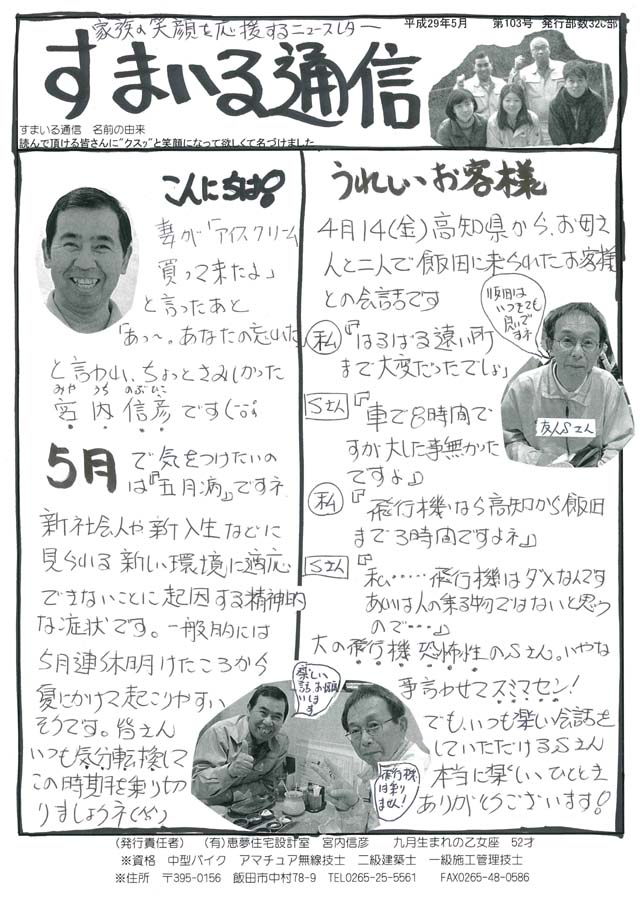 家族の笑顔を応援するニュースレター
平成29年5月 第103号 発行部数320部
すまいる通信
すまいる通信 名前の由来
読んで頂ける皆さんに"クスッ"と笑顔になって欲しくて名づけました
こんにちは!
妻が「アイスクリーム
買って来たよ」
と言ったあと
「あっ〜。あなたの忘れた」
と言われ、ちょっとさみしかった
みや うち のぶ ひこ
宮内信彦です(^-^;
5月 で気をつけたいの
は『五月病』ですネ
新社会人や新入生などに
見られる新しい環境に適応
できないことに起因する精神的
な症状です。一般的には
5月連休明けたころから
夏にかけて起こりやすい
そうです。皆さん
いつも気分転換して
この時期を乗り切
りましょうネ(^^)
うれしいお客様
4月14(金)高知県から、お母さ
んと二人で飯田に来られたお客様
との会話です
飯田は
いつきても
良いで
すネ
私『はるばる遠い所
まで大変だったでしょ』
友人Sさん
Sさん『車で8時間で
すが大した事無かた
ですよ』
私『飛行機なら高知から飯田
まで3時間ですよネ』
Sさん『私‥‥‥飛行機はダメなんです
あれは人の乗る物ではないと思う
ので‥‥』
大の飛行機恐怖性のSさん。いやな
事言わせてスミマセン!
でも、いつも楽しい会話を
していただけるSさん
本当に楽しいひととき
ありがとうございます!
楽しい
話お願
いしま
す
飛行機
は乗り
ません!
(発行責任者) (有)恵夢住宅設計室 宮内信彦 九月生まれの乙女座 52才
※資格 中型バイク アマチュア無線技士 二級建築士 一級施工管理技士
※住所 〒395-0156 飯田市中村78-9 TEL0265-25-5561 FAX0265-48-0586